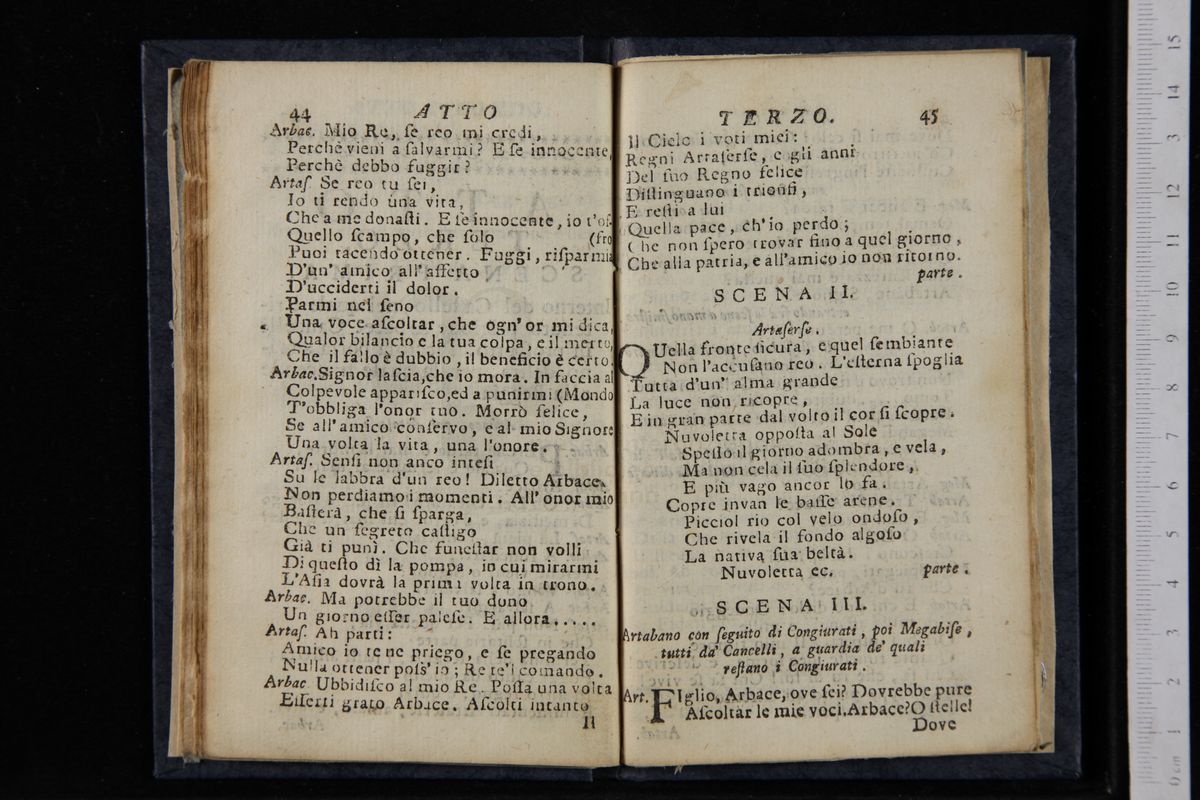 44 ATTO
Arbac. Mio Re, ſe reo mi credi,
Perchè vieni a ſalvarmi? E ſe innocente,
Perchè debbo fuggir?
Artaſ. Se reo tu ſei,
Io ti rendo una vita,
Che a me donaſti. E ſe innocente, io t'of-
Quello ſcampo, che ſolo (fro
Puoi tacendo ottener. Fuggi, riſparmia
D'un' amico all' affetto
D'ucciderti il dolor.
Parmi nel ſeno
Una voce aſcoltar, che ogn' or mi dica,
Qualor bilancio e la tua colpa, e il merto,
Che il fallo è dubbio, il beneficio è certo.
Arbac. Signor laſcia, che io mora. In faccia al
Colpevole appariſco, ed a punirmi (Mondo
T'obbliga l'onor tuo. Morrò felice,
Se all' amico conſervo, e al mio Signore
Una volta la vita, una l'onore.
Artaſ. Senſi non anco inteſi
Su le labbra d'un reo! Diletto Arbace,
Non perdiamo i momenti. All' onor mio
Baſterà, che ſi ſparga,
Che un ſegreto caſtigo
Già ti punì. Che funeſtar non volli
Di queſto dì la pompa, in cui mirarmi
L'Aſia dovrà la prima volta in trono.
Arbac. Ma potrebbe il tuo dono
Un giorno eſſer paleſe. E allora.....
Artaſ. Ah parti:
Amico io te ne priego, e ſe pregando
Nulla ottener poſs' io; Re te'l comando.
Arbac. Ubbidiſco al mio Re. Poſſa una volta
Eſſerti grato Arbace. Aſcolti intanto
Il
TERZO. 45
Il Cielo i voti miei:
Regni Artaſerſe, e gli anni
Del ſuo Regno felice
Diſtinguano i trionfi,
E reſti a lui
Quella pace, ch' io perdo;
Che non ſpero trovar fino a quel giorno,
Che alla patria, e all'amico io non ritorno.
parte.
SCENA II.
Artaſerſe.
QUella fronte ſicura, e quel ſembiante
Non l'accuſano reo. L'eſterna ſpoglia
Tutta d'un' alma grande
La luce non ricopre,
E in gran parte dal volto il cor ſi ſcopre.
Nuvoletta oppoſta al Sole
Speſſo il giorno adombra, e vela,
Ma non cela il ſuo ſplendore,
E più vago ancor lo fa.
Copre invan le baſſe arene.
Picciol rio col velo ondoſo,
Che rivela il fondo algoſo
La nativa ſua beltà.
Nuvoletta ec. parte.
SCENA III.
Artabano con ſeguito di Congiurati, poi Megabiſe,
tutti da' Cancelli, a guardia de' quali
reſtano i Congiurati.
Art. FIglio, Arbace, ove ſei? Dovrebbe pure
Aſcoltar le mie voci. Arbace? O ſtelle!
Dove